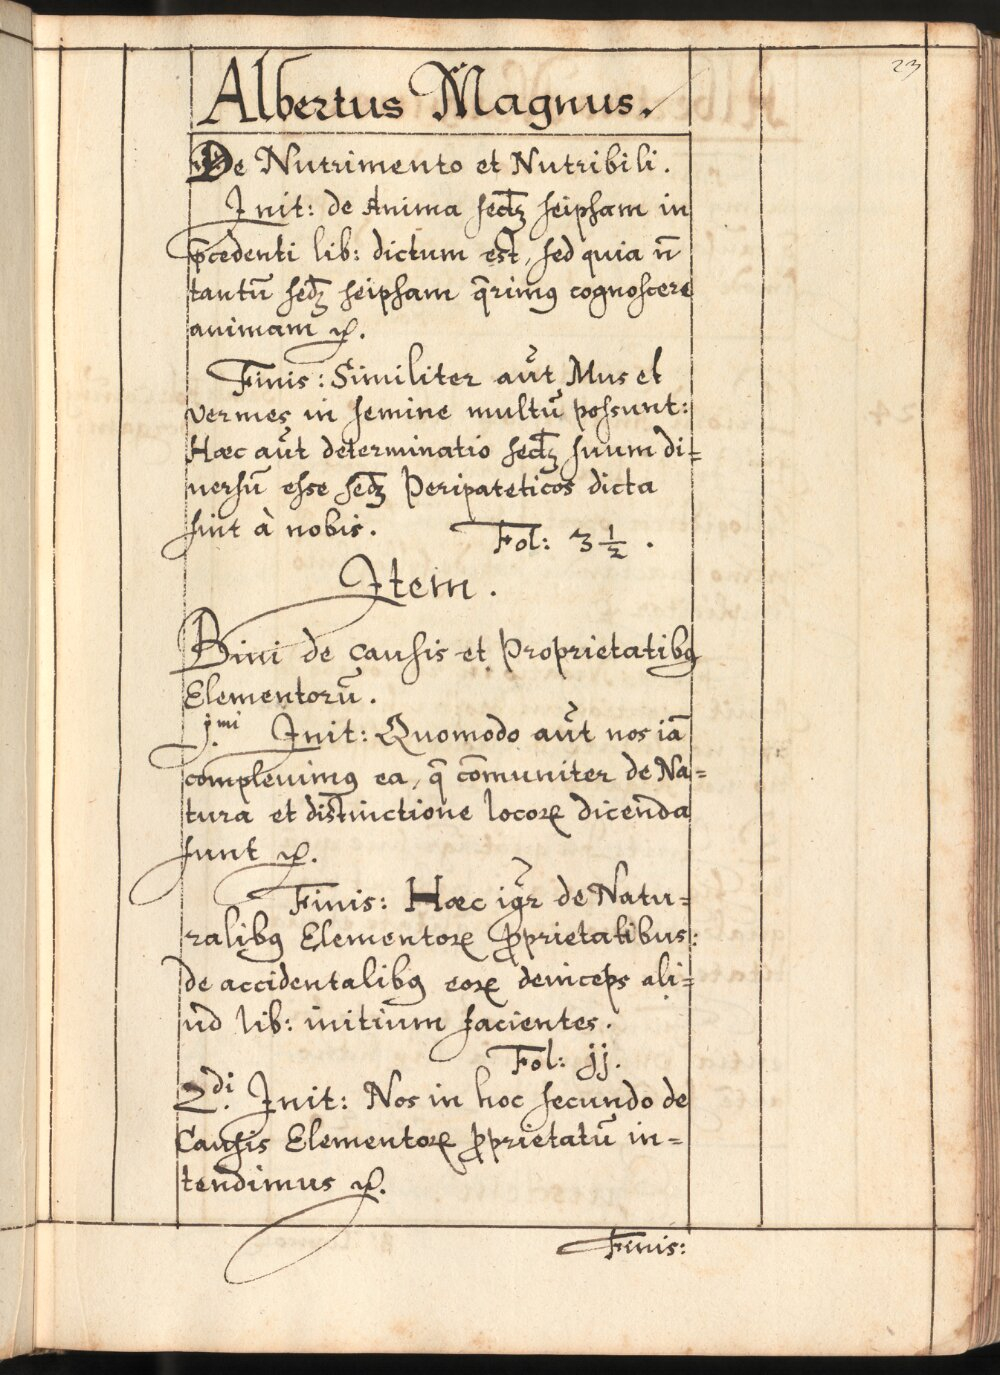 23
Albertus Magnus.
De Nutrimento et Nutribili.
Init: de Anima secdꝫ seipsam in
p̄cedenti lib: dictum est, sed quia n̄
tantū secdꝫ seipsam q̄rimꝰ cognoscere
animam ꝛc.
Finis: Similiter aut̄ Mus et
vermes in semine multū possunt:
Hæc aut̄ determinatio secdꝫ suum di=
uersū esse secdꝫ Peripateticos dicta
sint à nobis.
Fol: 3 ½ .
Item.
Bini de Causis et Proprietatibꝰ
Elementorū.
j.mi Init: Quomodo aut̄ nos iā
compleuimꝰ ea, q̄ com̄uniter de Na=
tura et distinctione locoꝝ dicenda
sunt ꝛc.
Finis: Hæc igr̄ de Natu=
ralibꝰ Elementoꝝ ꝓprietatibus:
de accidentalibꝰ eoꝝ deinceps ali=
ud lib: initium facientes.
Fol: jj.
2.di Init: Nos in hoc secundo de
Causis Elementoꝝ ꝓprietatū in=
tendimus ꝛc.
Finis: